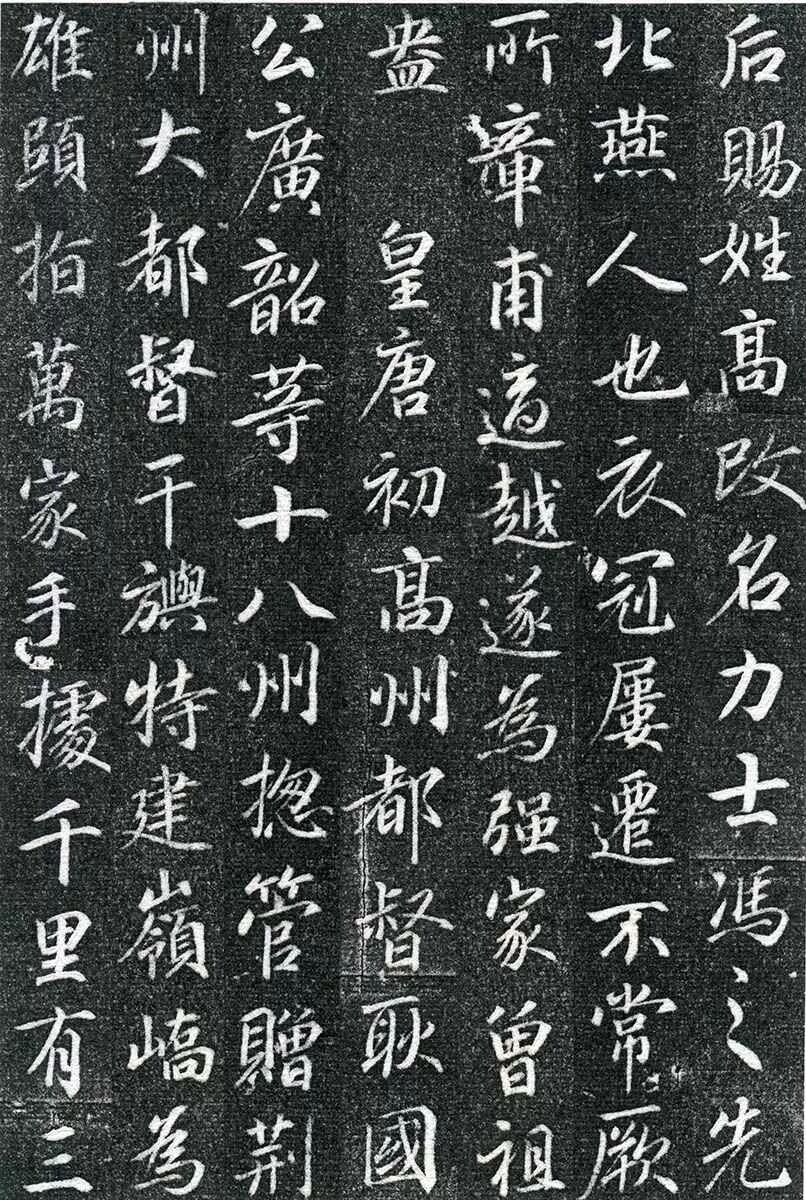 后賜姓高改名力士馮之先
北燕人也衣冠屢遷不常厥
所章甫適越遂為强家曾祖
盎 皇唐初高州都督耿國
公廣韶等十八州揔管贈荆
州大都督干旟特建嶺嶠為
雄頤指萬家手據千里有三